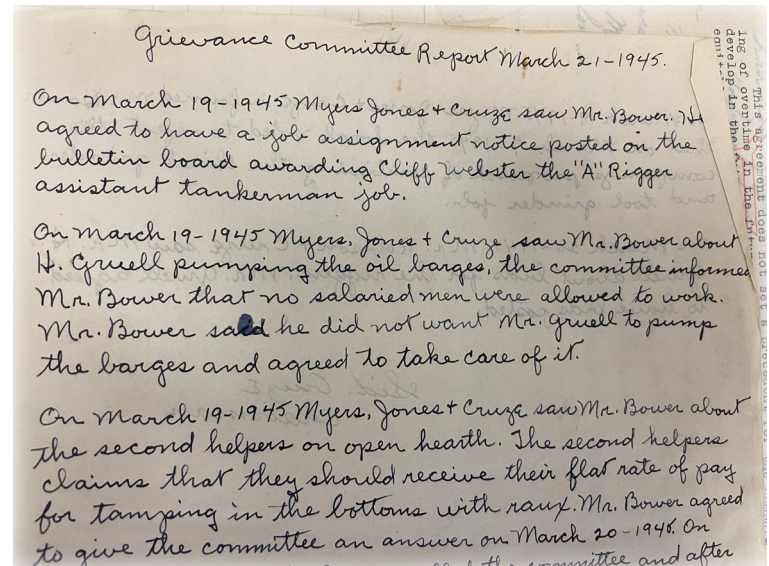 Grievance Committee Report March 21-1945.
On March 19-1945 Myers Jones + Cruze saw Mr. Bower. He
agreed to have a job assignment notice posted on the
bulletin board awarding Cliff Webster the "A" Rigger
assistant tankerman job.
On March 19-1945 Myers, Jones + Cruze saw Mr. Bower about
H. Gruell pumping the oil barges, the committee informed
Mr. Bower that no salaried men were allowed to work.
Mr. Bower said he did not want Mr. Gruell to pump
the barges and agreed to take care of it.
On March 19-1945 Myers, Jones + Cruze saw Mr. Bower about
the second helpers on open hearth. The second helpers
claims that they should receive their flat rate of pay
for tamping in the bottoms with raux. Mr. Bower agreed
to give the committee an answer on March 20-1945. On
the committee and after
This agreement does not set a
ing of overtime in the
develop in the